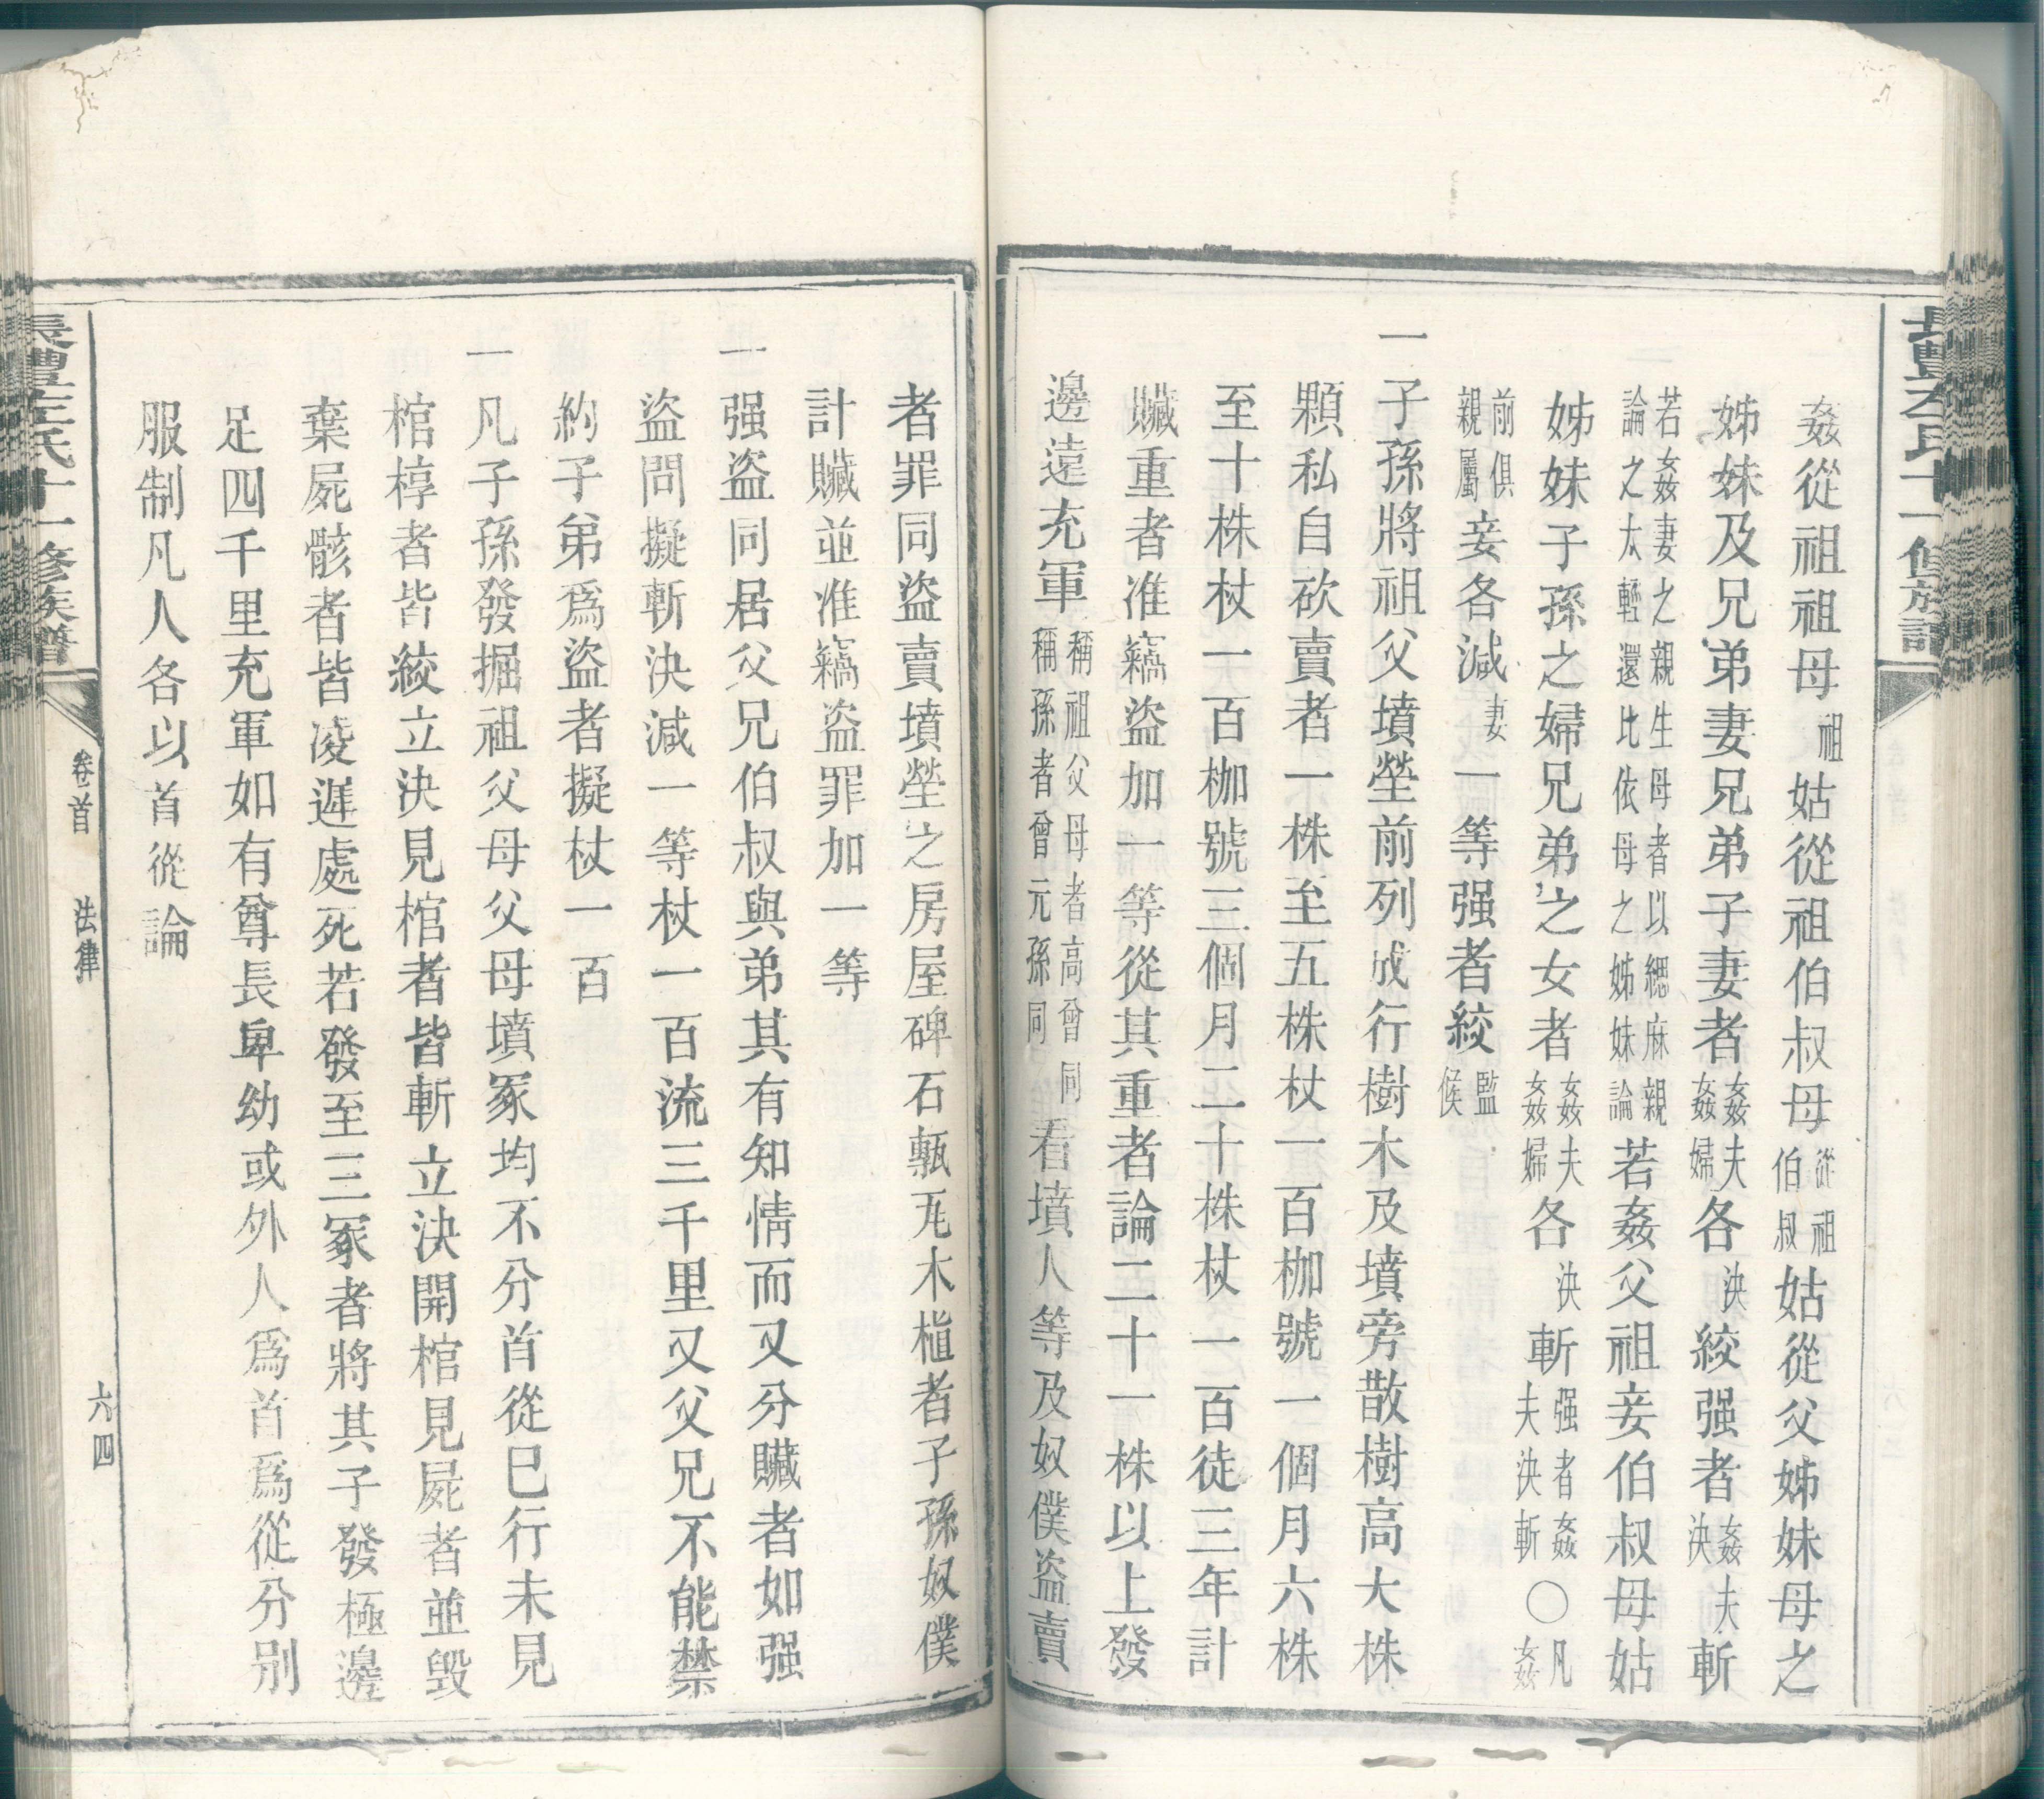 長豐左氏十一修族譜
姦從祖祖母祖姑從祖伯叔母從祖伯叔姑從父姊妹母之
姊妹及兄弟妻兄弟子妻者姦夫姦婦各決絞强者姦夫決斬
若姦妻之親生母者以緦麻親論之太輕還比依母之姊妹論若姦父祖妾伯叔母姑
姊妹子孫之婦兄弟之女者姦夫姦婦各決斬强者姦夫決斬〇凡姦
前俱親屬妾各減妻一等强者絞監候
一子孫將祖父墳塋前列成行樹木及墳旁散樹高大株
顆私自砍賣者一株至五株杖一百枷號一個月六株
至十株杖一百枷號二個月十一株至二十株杖一百徒三年計
贜重者准竊盜加一等從其重者論二十一株以上發
邊遠充軍稱祖父母者高曾同稱孫者曾元孫同看墳人等及奴僕盜賣
者罪同盜賣墳塋之房屋碑石甎瓦木植者子孫奴僕
計贜並准竊盜罪加一等
一强盜同居父兄伯叔與弟其有知情而又分贜者如强
盜問擬斬決減一等杖一百流三千里又父兄不能禁
約子弟爲盜者擬杖一百
一凡子孫發掘祖父母父母墳冢均不分首從已行未見
棺椁者皆絞立決見棺者皆斬立決開棺見屍者並毀
棄屍骸者皆凌遲處死若發至三冢者將其子發極邊
足四千里充軍如有尊長卑幼或外人爲首爲從分別
服制凡人各以首從論
長豐左氏十一修族譜
卷首
法律
六四